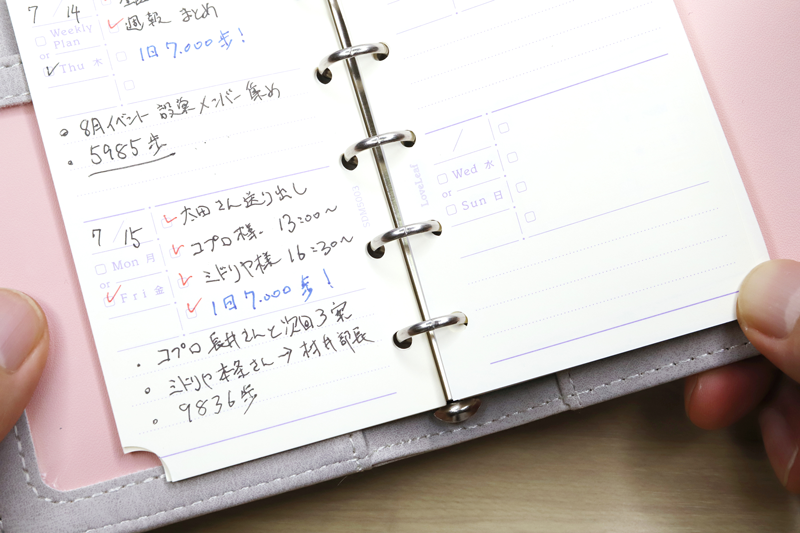 7/14
週報 まとめ
Weekly Plan
or
Thu 木
1日 7,000歩!
・8月イベント 設営メンバー集め
・5985歩
7/15
Mon 月
or
Fri 金
太田さん送り出し
コプロ様 13:00〜
ミドリヤ様 16:30〜
1日 7,000歩!
・コプロ 長井さんと次回3案
・ミドリヤ 本条さん→村井部長
・9836歩
/
Wed 水
or
Sun 日